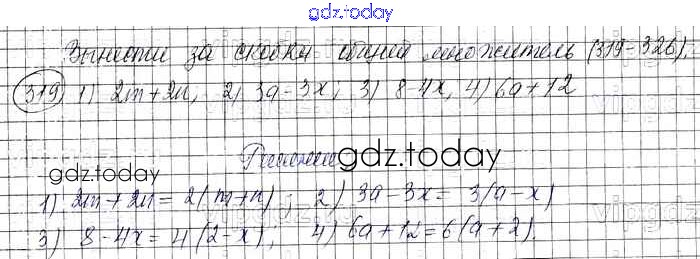 gdz.today
Вынести за скобки общий множитель (319-326).
319) 1) 2m+2n, 2) 3a-3x; 3) 8-4x, 4) 6a+12
Решение gdz.today
gdz.today
1) 2m+2n=2(m+n); 2) 3a-3x=3(a-x)
3) 8-4x=4(2-x); 4) 6a+12=6(a+2).